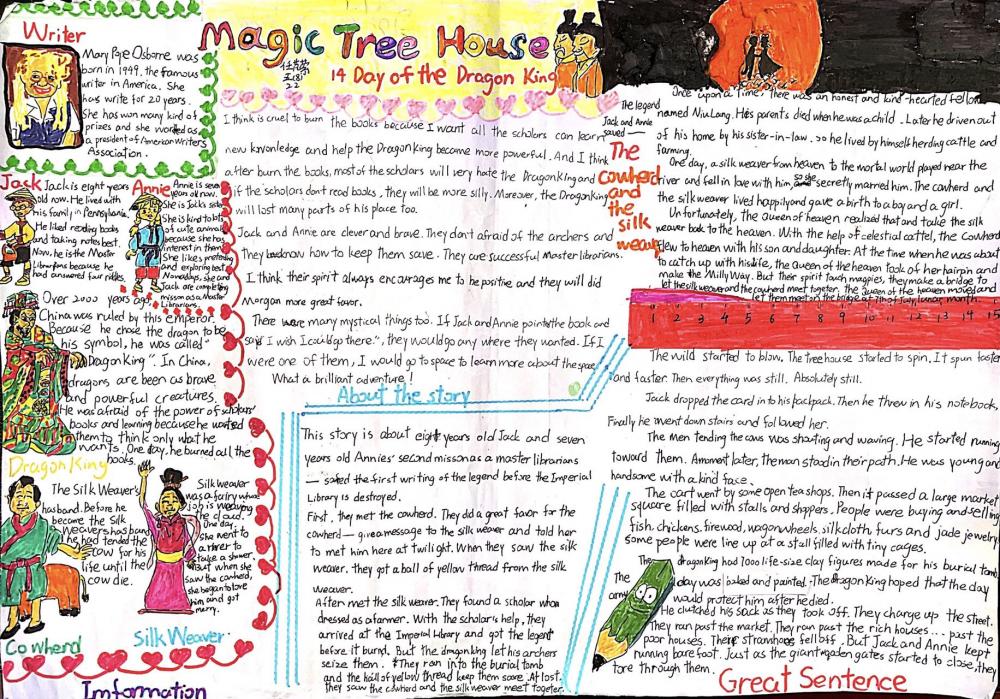 Writer
Mary Pope Osborne was
born in 1949, the famous
writer in America. She
has write for 20 years.
She has won many kind of
prizes and she worked as
a president of American writers
Association.
Magic Tree House
14 Day of the Dragon King
Jack
Jack is eight years
old now. He lived with
his family in Pennsylvania.
He liked reading books
and taking notes best.
Now, he is the Master
Librarians because he
had answered four riddles.
Annie
Annie is seven
years old now.
She is Jack's sister.
She is kind to lots
of cute animals
because she has
interest in them.
She likes pretending
and exploring best.
Nowadays, she and
Jack are completing
misson as a Master
Librarians.
Over 2000 years ago,
China was ruled by this emperor.
Because he chose the dragon to be
his symbol, he was called "
Dragon King". In China,
dragons are been as brave
and powerful creatures.
He was afraid of the power of scholars'
books and learning because he wanted
them to think only what he
wants. One day, he burned all the
books.
Dragon King
The Silk Weaver's
hasband. Before he
become the Silk
Weavers hasband
he had tended the
cow for his
life until the
cow die.
Cowherd
Silk Weaver
was a fairy whose
job is weaving
the cloud.
One day,
she went to
a river to
take a shower.
But when she
saw the cowherd,
she began to love
him and got
merry.
Silk Weaver
Imformation
I think is cruel to burn the books because I want all the scholars can learn
new knownledge and help the Dragon King become more powerful. And I think
after burn the books, most of the scholars will very hate the Dragon King and
if the scholars don't read books, they will be more silly. Moreover, the Dragon King
will lost many parts of his place too.
Jack and Annie are clever and brave. They don't afraid of the archers and
They know how to keep them save. They are successful Master librarians.
I think their spirit always encourages me to be positive and they will did
Morgan more great favor.
There were many mystical things too. If Jack and Annie pointed the book and
say "I wish I could go there.", they would go any where they wanted. If I
were one of them, I would go to space to learn more about the space.
What a brilliant adventure!
About the story
This story is about eight years old Jack and seven
years old Annies' second misson as a master librarians
— safed the first writing of the legend before the Imperial
Library is destroyed.
First, they met the cowherd. They did a great favor for the
cowherd — give a message to the silk weaver and told her
to met him here at twilight. When they saw the silk
weaver, they got a ball of yellow thread from the silk
weaver.
After met the silk weaver. They found a scholar who
dressed as a farmer. With the scholar's help, they
arrived at the Imperial Library and got the legend
before it burnd. But the dragon king let his archers
seize them. They ran into the burial tomb
and the ball of yellow thread keep them save. At last,
they saw the cowherd and the silk weaver meet together.
The legend
Jack and Annie
saved —
The
cowherd
and
the
silk
weaver
Once upon a time, There was an honest and kind-hearted fellow
named NiuLang. His parents died when he was a child. Later he driven out
of his home by his sister-in-law. so he lived by himself herding cattle and
farming.
One day, a silk weaver from heaven to the mortal world played near the
river and fell in love with him, so she secretly married him. The cowherd and
the silk weaver lived happily and gave a birth to a boy and a girl.
Unfortunately, the Queen of heaven realized that and take the silk
weaver back to the heaven. With the help of celestial cattel, the cowherd
flew to heaven with his son and daughter. At the time when he was about
to catch up with his wife, the Queen of the heaven took of her hairpin and
make the Milly Way. But their spirit touch magpies, they make a bridge to
let the silk weaver and the cowherd meet together. The Queen of the heaven moved and
let them meet on the bridge at 7th of July, lunar month.
1 2 3 4 5 6 7 8 9 10 11 12 13 14 15
The wild started to blow. The tree house started to spin. It spun faster
and faster. Then everything was still. Absolutely still.
Jack dropped the card in to his backpack. Then he threw in his notebook.
Finally he went down stairs and followed her.
The men tending the cows was shouting and waving. He started running
toward them. A moment later, the man stood in their path. He was young and
handsome with a kind face.
The cart went by some open tea shops. Then it passed a large market
square filled with stalls and shppers. People were buying and selling
fish, chickens, firewood, wagon wheels, silk cloth furs and jade jewelry
some people were line up at a stall filled with tiny cages.
The dragon King had 7000 life-size clay figures made for his burial tomb
The clay was baked and painted. The dragon king hoped that the clay
army would protect him after he died.
He clutched his sack as they took off. They charge up the street.
They ran past the market. They ran past the rich houses... past the
poor houses. Their straw shoes fell off. But Jack and Annie kept
running barefoot. Just as the giant wooden gates started to close, they
tore through them.
Great Sentence